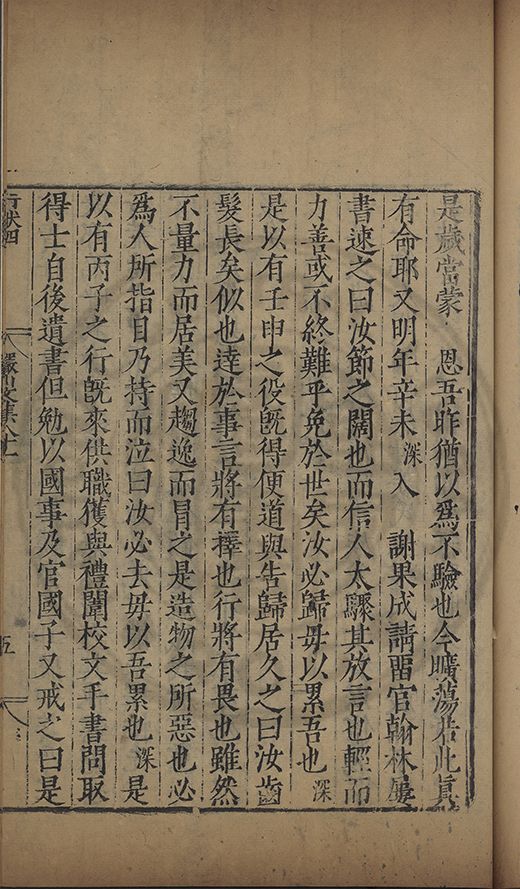 是歲當蒙 恩吾昨猶以爲不驗也今曠蕩若此眞
有命耶又明年辛未深入 謝果成請留官翰林屢
書速之曰汝節之闊也而信人太驟其放言也輕而
力善或不終難乎免於世矣汝必歸毋以累吾也深
是以有壬申之役旣得便道與告歸居久之曰汝齒
髮長矣似也達於事言將有擇也行將有畏也雖然
不量力而居美又趨逸而冒之是造物之所惡也必
爲人所指目乃持而泣曰汝必去毋以吾累也深是
以有丙子之行旣來供職獲與禮闈校文手書問取
得士自後遺書但勉以國事及官國子又戒之曰是
行狀四
五